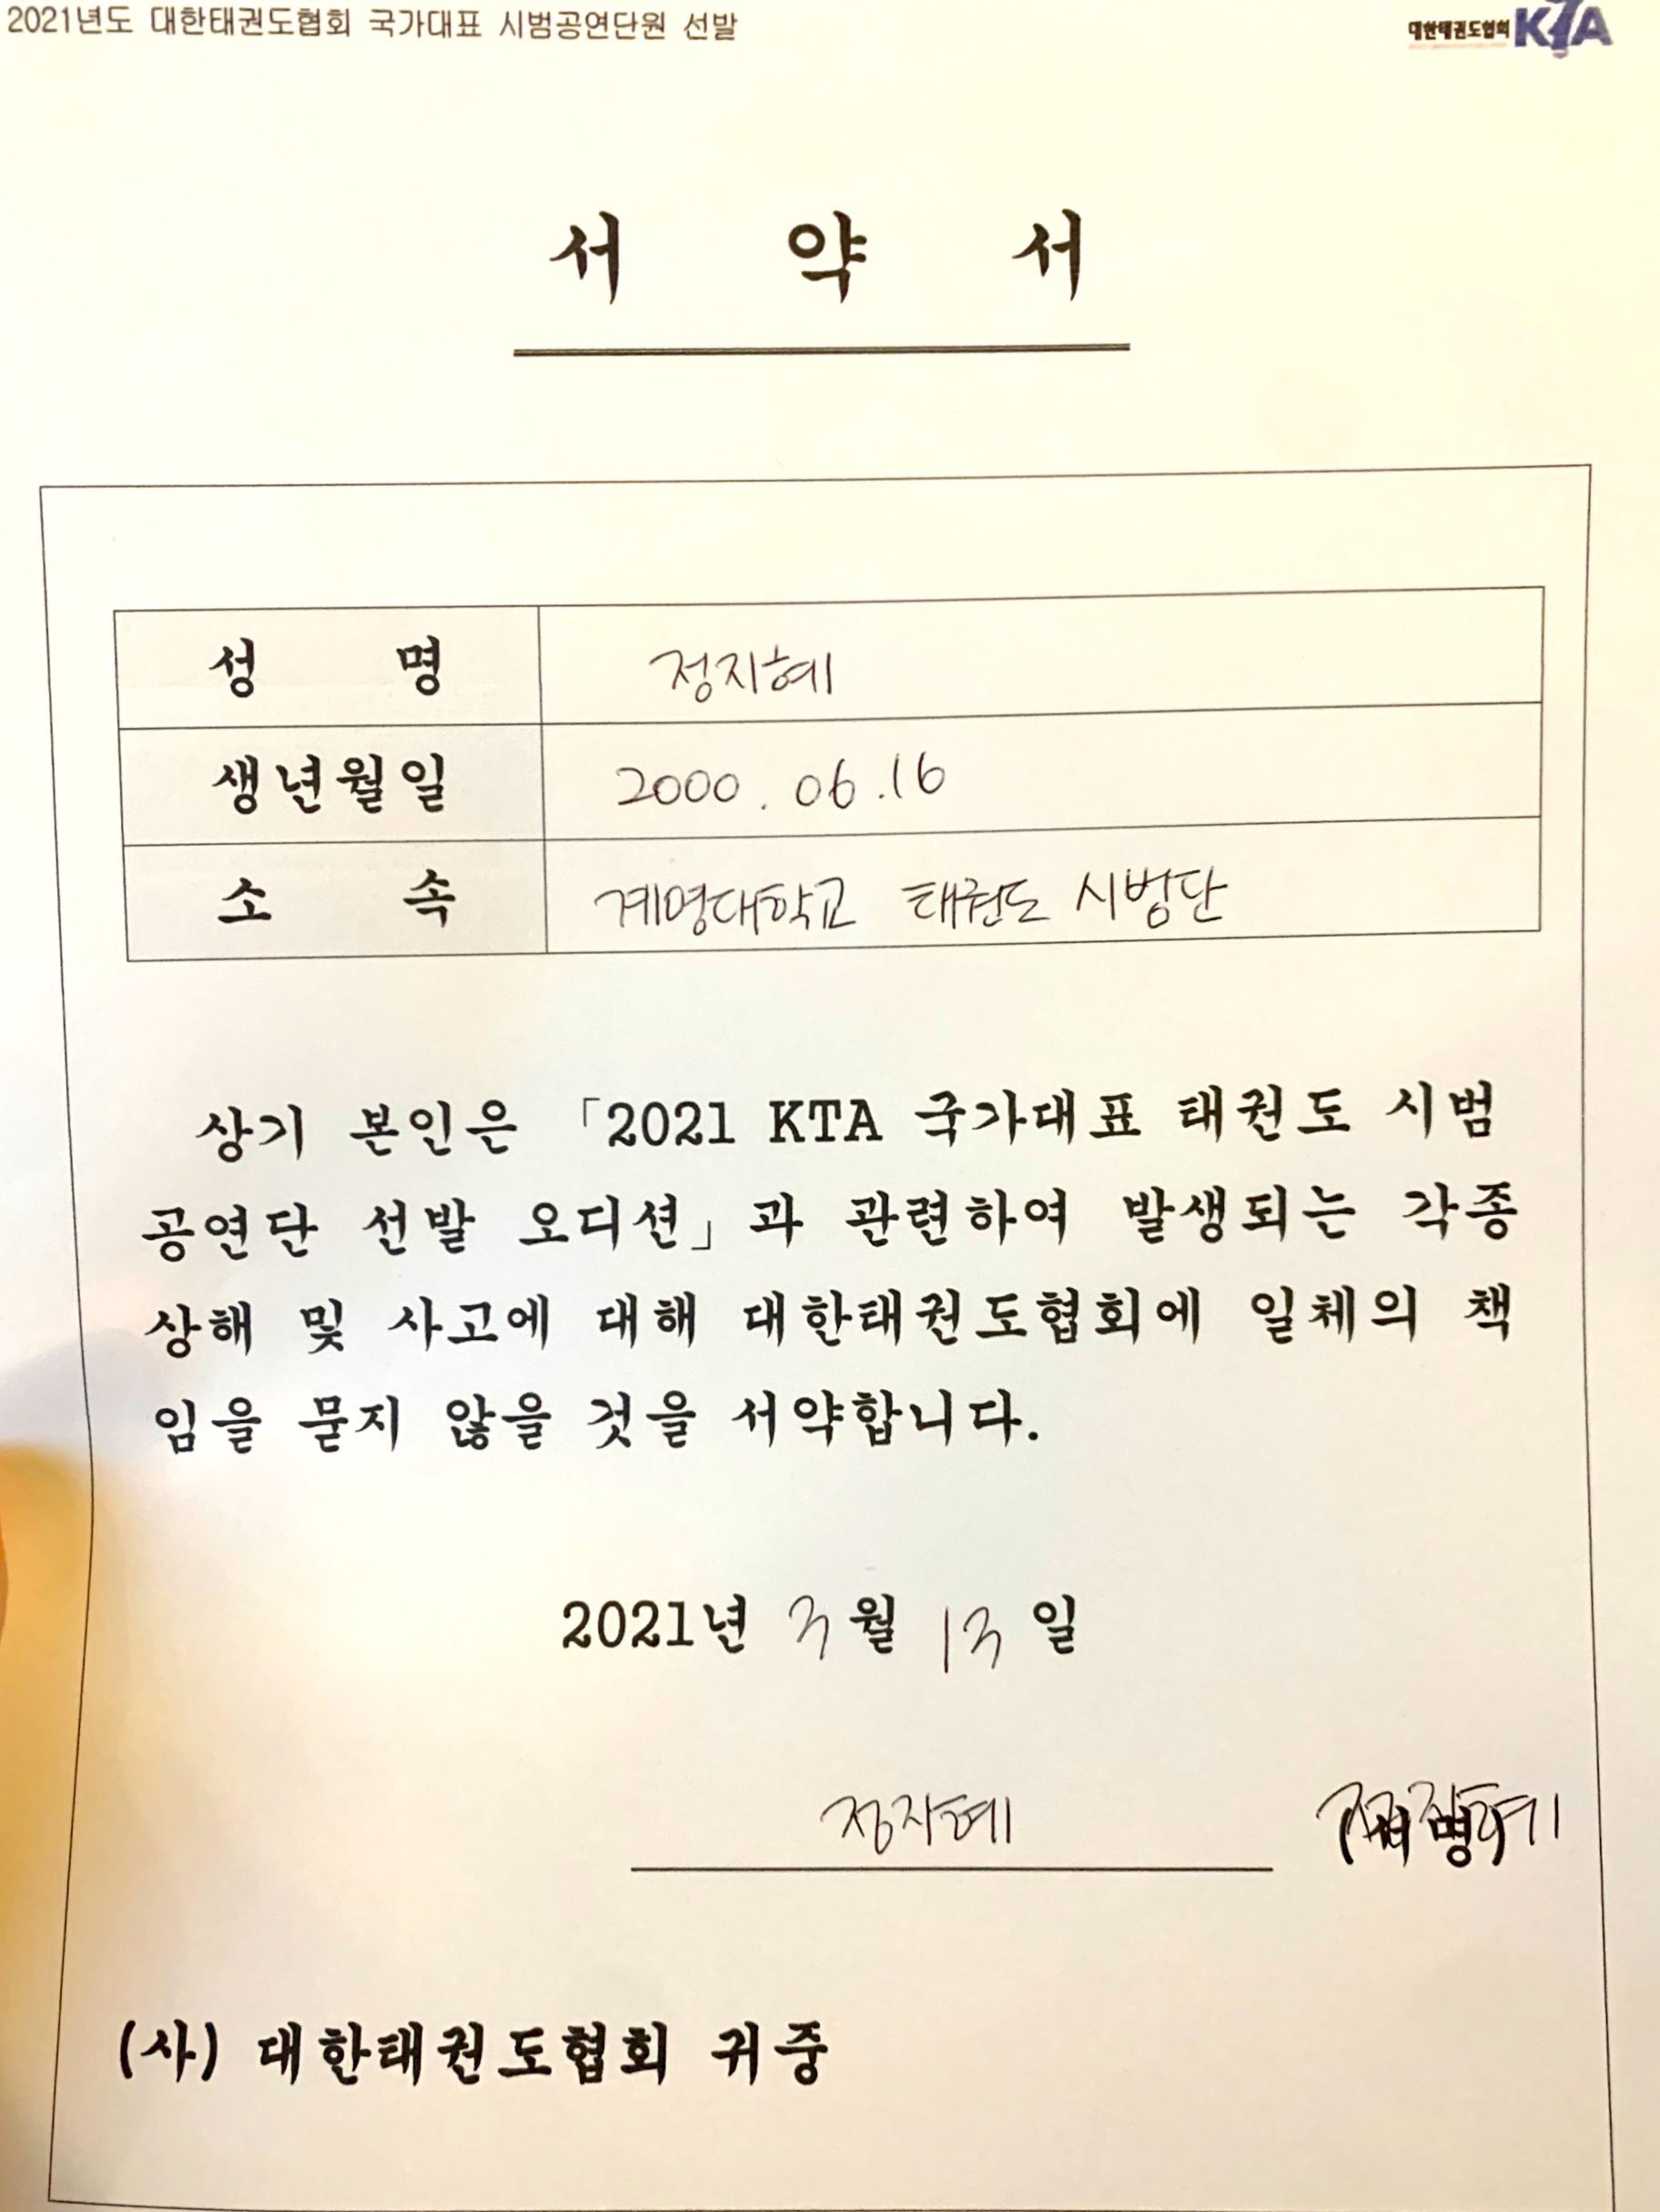 2021년도 대한태권도협회 국가대표 시범공연단원 선발
대한태권도협회 KTA
서 약 서
성 명 정지혜
생년월일 2000. 06.16
소 속 계명대학교 태권도 시범단
상기 본인은 「2021 KTA 국가대표 태권도 시범
공연단 선발 오디션」과 관련하여 발생되는 각종
상해 및 사고에 대해 대한태권도협회에 일체의 책
임을 묻지 않을 것을 서약합니다.
2021년 3월 13일
정지혜 (서명) 정지혜
(사) 대한태권도협회 귀중